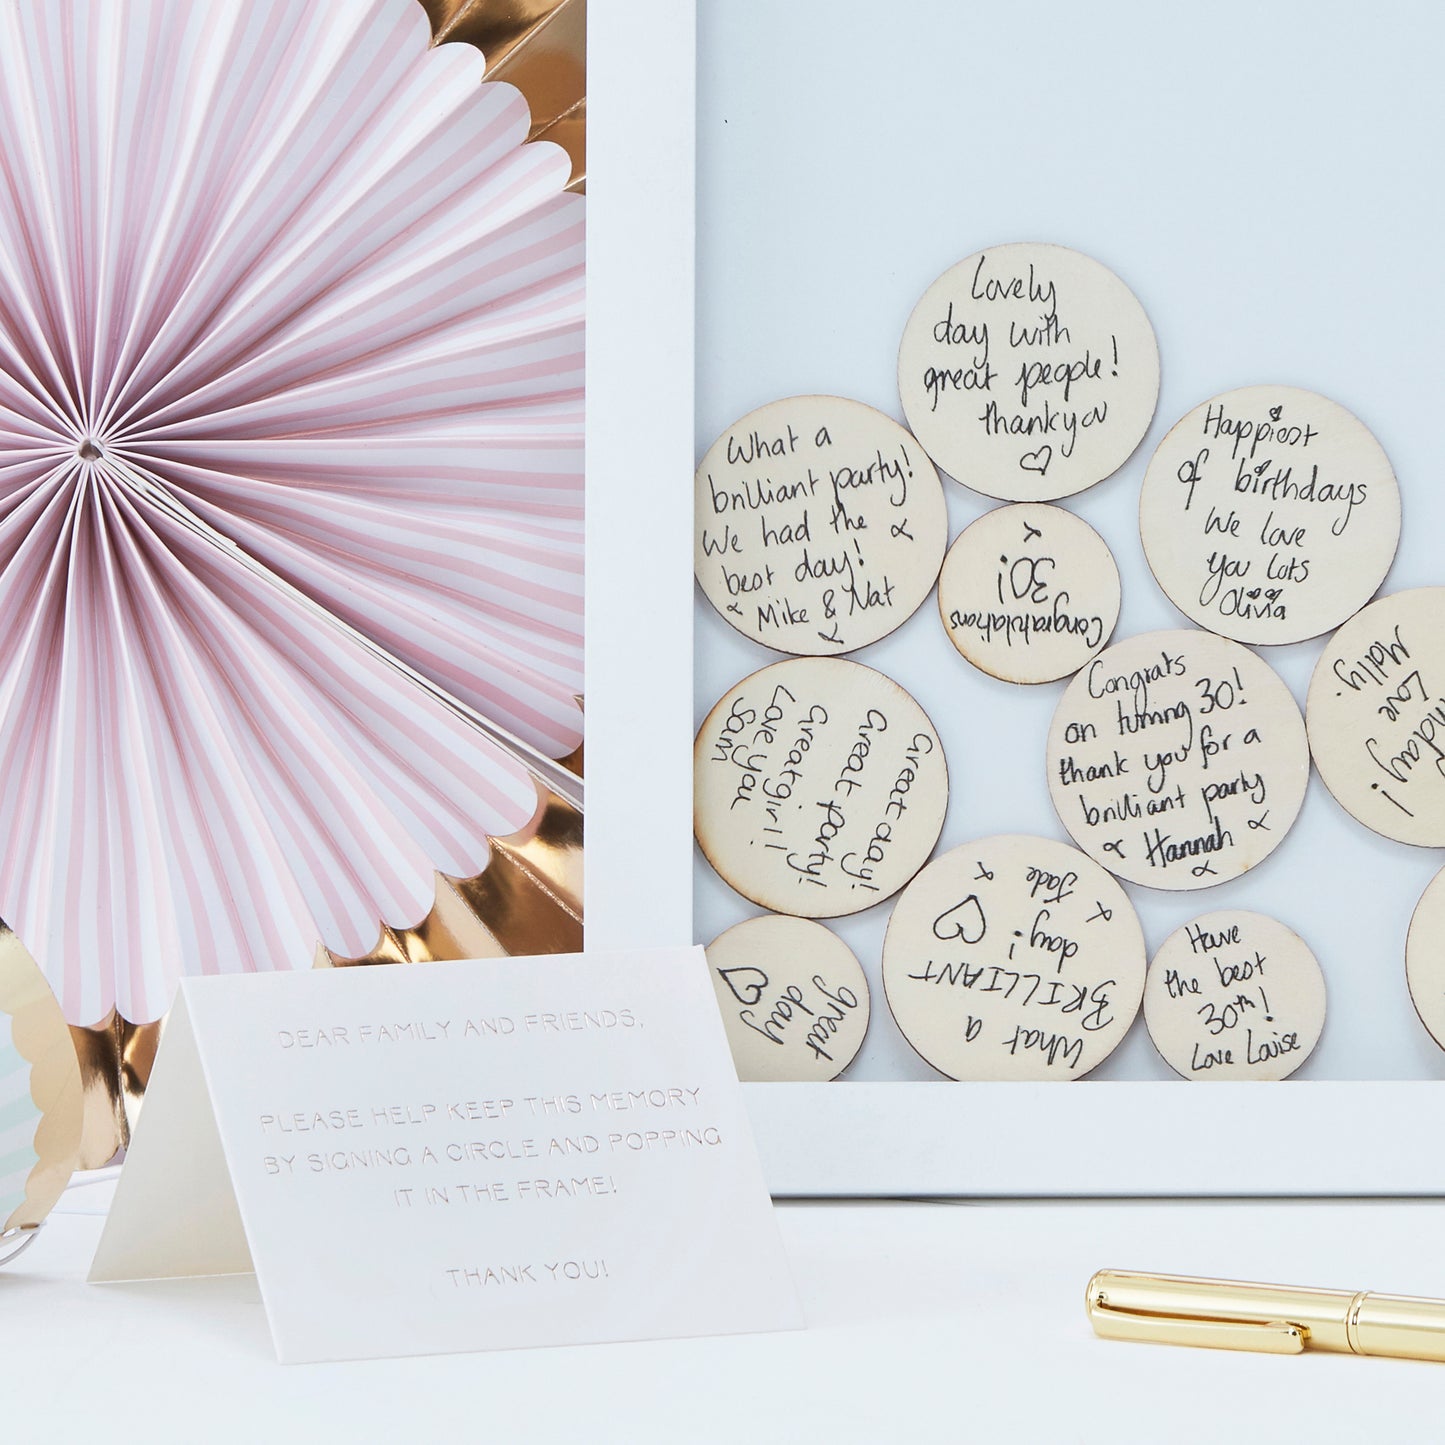 Lovely
day with
great people!
thankyou
What a
brilliant party!
We had the
best day!
Mike & Nat
Happiest
of birthdays
We love
you lots
Olivia
Congratulations
30!
Congrats
on turning 30!
thank you for a
brilliant party
Hannah
day!
Love
Molly.
Great day!
Great party!
Great girl!
Love you
Sam
What a
BRILLIANT
day!
Jade
great
day
Have
the best
30th!
Love Louise
DEAR FAMILY AND FRIENDS,
PLEASE HELP KEEP THIS MEMORY
BY SIGNING A CIRCLE AND POPPING
IT IN THE FRAME!
THANK YOU!